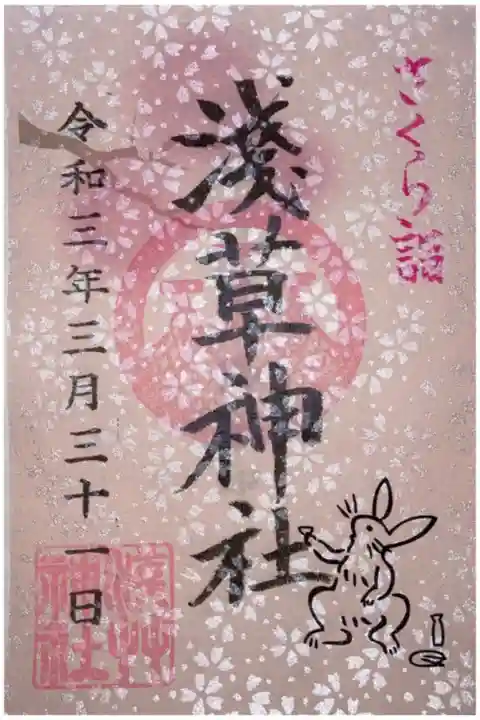 さくら詣
淺草神社
令和三年三月三十一日
淺艸
神社